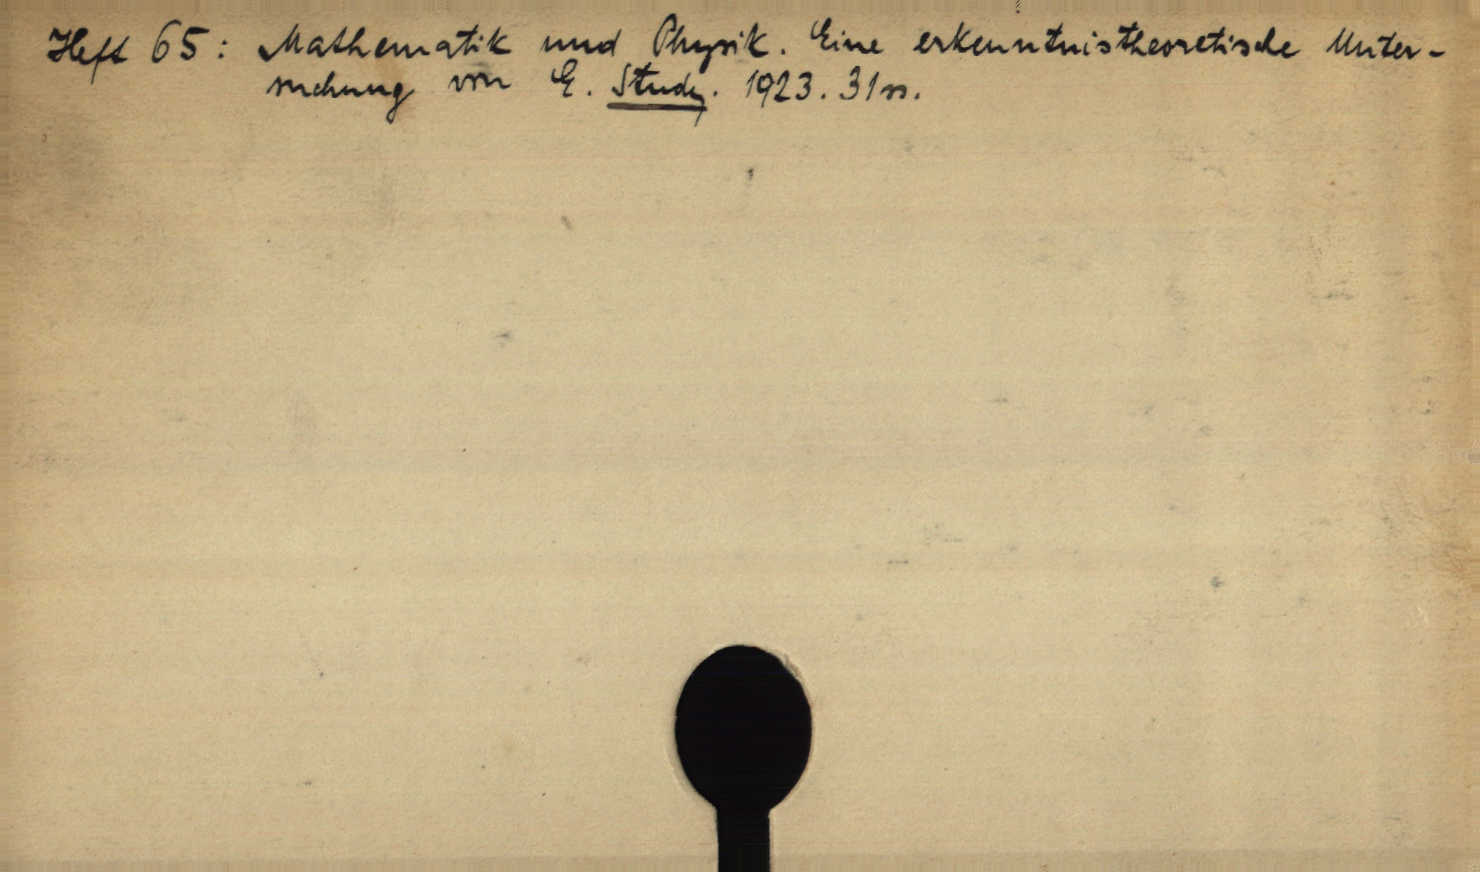 Heft 65: Mathematik und Physik. Eine erkenntnistheoretische Unter-
suchung von E. Study. 1923. 31 ss.